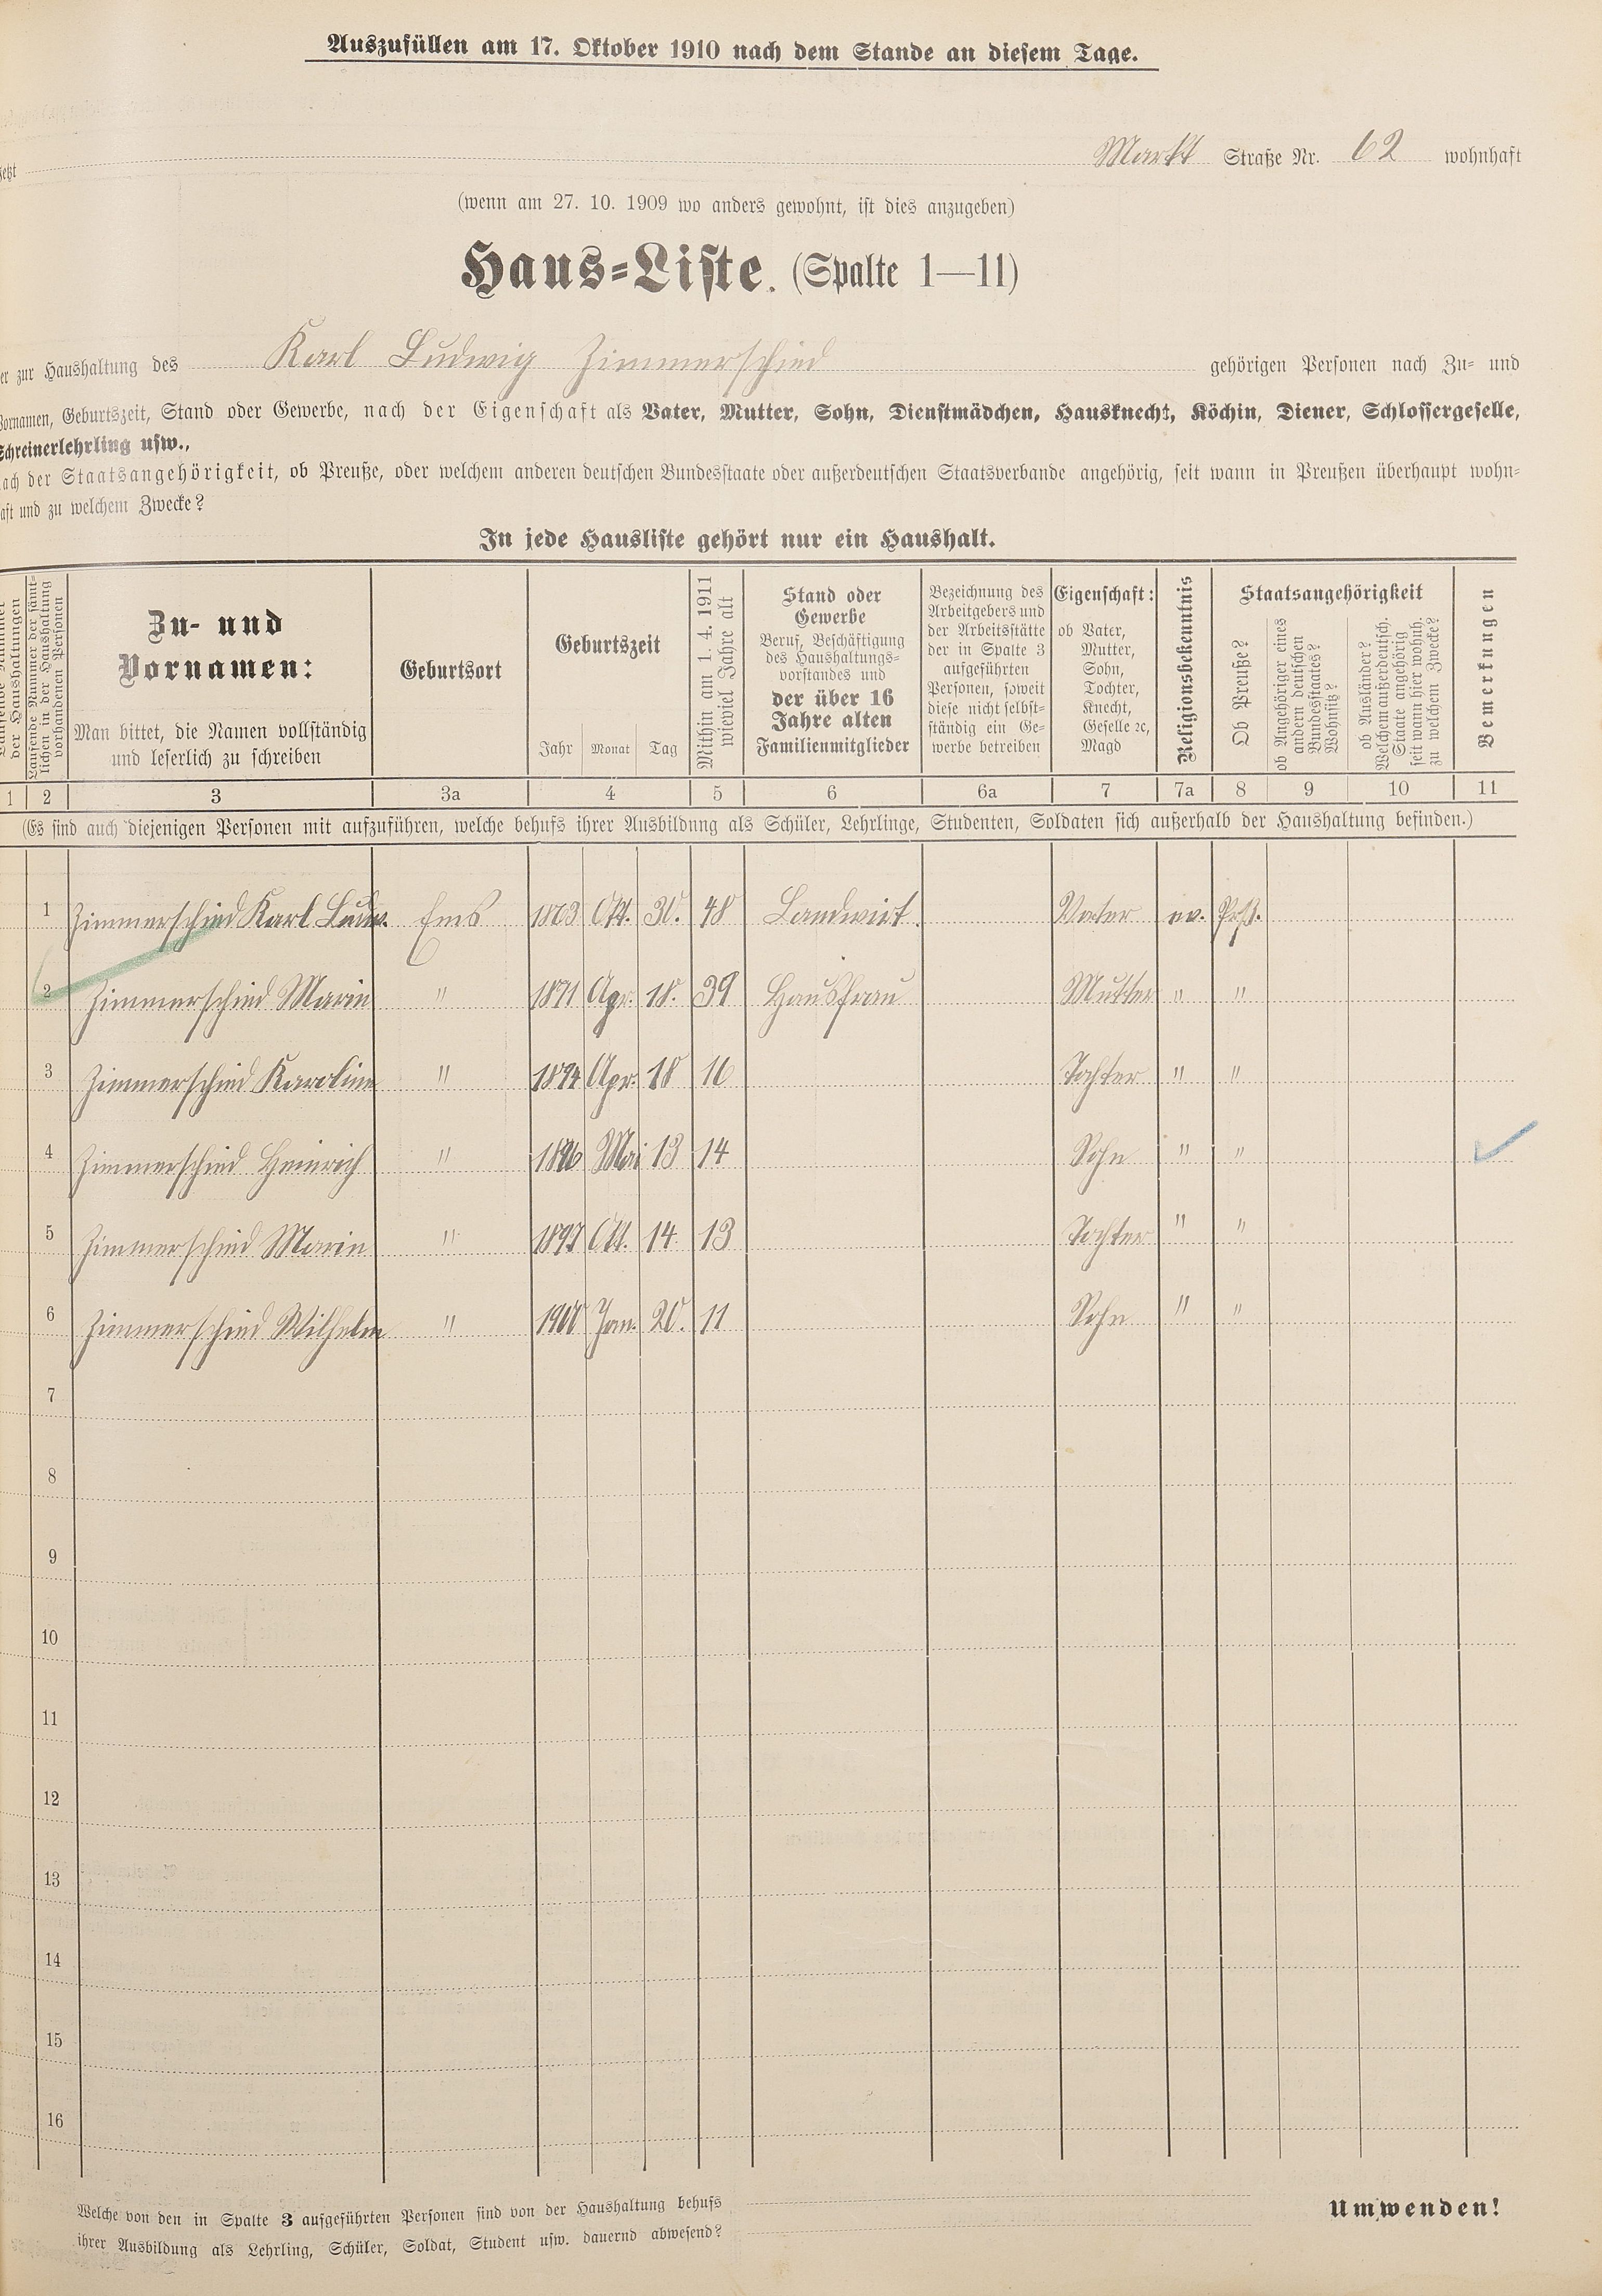 Auszufüllen am 17. Oktober 1910 nach dem Stande an diesem Tage.
jetzt Markt Straße Nr. 62 wohnhaft
(wenn am 27. 10. 1909 wo anders gewohnt, ist dies anzugeben)
Haus-Liste. (Spalte 1—11)
er zur Haushaltung des Karl Ludwig Zimmerschied gehörigen Personen nach Zu- und
Vornamen, Geburtszeit, Stand oder Gewerbe, nach der Eigenschaft als Vater, Mutter, Sohn, Dienstmädchen, Hausknecht, Köchin, Diener, Schlossergeselle,
Schreinerlehrling usw.,
nach der Staatsangehörigkeit, ob Preuße, oder welchem anderen deutschen Bundesstaate oder außerdeutschen Staatsverbande angehörig, seit wann in Preußen überhaupt wohn-
haft und zu welchem Zwecke?
In jede Hausliste gehört nur ein Haushalt.
der Haushaltungen
Laufende Nummer der sämt-
lichen in der Haushaltung
vorhandenen Personen
Zu- und
Vornamen:
Man bittet, die Namen vollständig
und leserlich zu schreiben
Geburtsort
Geburtszeit
Jahr Monat Tag
Mithin am 1. 4. 1911
wieviel Jahre alt
Stand oder
Gewerbe
Beruf, Beschäftigung
des Haushaltungs-
vorstandes und
der über 16
Jahre alten
Familienmitglieder
Bezeichnung des
Arbeitgebers und
der Arbeitsstätte
der in Spalte 3
aufgeführten
Personen, soweit
diese nicht selbst-
ständig ein Ge-
werbe betreiben
Eigenschaft:
ob Vater,
Mutter,
Sohn,
Tochter,
Knecht,
Geselle ꝛc,
Magd
Religionsbekenntnis
Staatsangehörigkeit
Ob Preuße?
ob Angehöriger eines
andern deutschen
Bundesstaates?
Wohnsitz?
ob Ausländer?
Welchem außerdeutsch.
Staate angehörig
seit wann hier wohnh.
zu welchem Zwecke?
Bemerkungen
1 2 3 3a 4 5 6 6a 7 7a 8 9 10 11
(Es sind auch diejenigen Personen mit aufzuführen, welche behufs ihrer Ausbildung als Schüler, Lehrlinge, Studenten, Soldaten sich außerhalb der Haushaltung befinden.)
1 Zimmerschied Karl Ludw. Ems Okt. 30. 48 Landwirt. Vater ev. Prß.
2 Zimmerschied Marie " 1871 Apr. 18. 39 Hausfrau Mutter " "
3 Zimmerschied Karoline " 1894 Apr. 18 16 Tochter " "
4 Zimmerschied Heinrich " 1896 Mai 13 14 Sohn " "
5 Zimmerschied Marie " 1897 Okt. 14. 13 Tochter " "
6 Zimmerschied Wilhelm " 1900 Jan. 20. 11 Sohn " "
7
8
9
10
11
12
13
14
15
16
Welche von den in Spalte 3 aufgeführten Personen sind von der Haushaltung behufs
ihrer Ausbildung als Lehrling, Schüler, Soldat, Student usw. dauernd abwesend?
Umwenden!